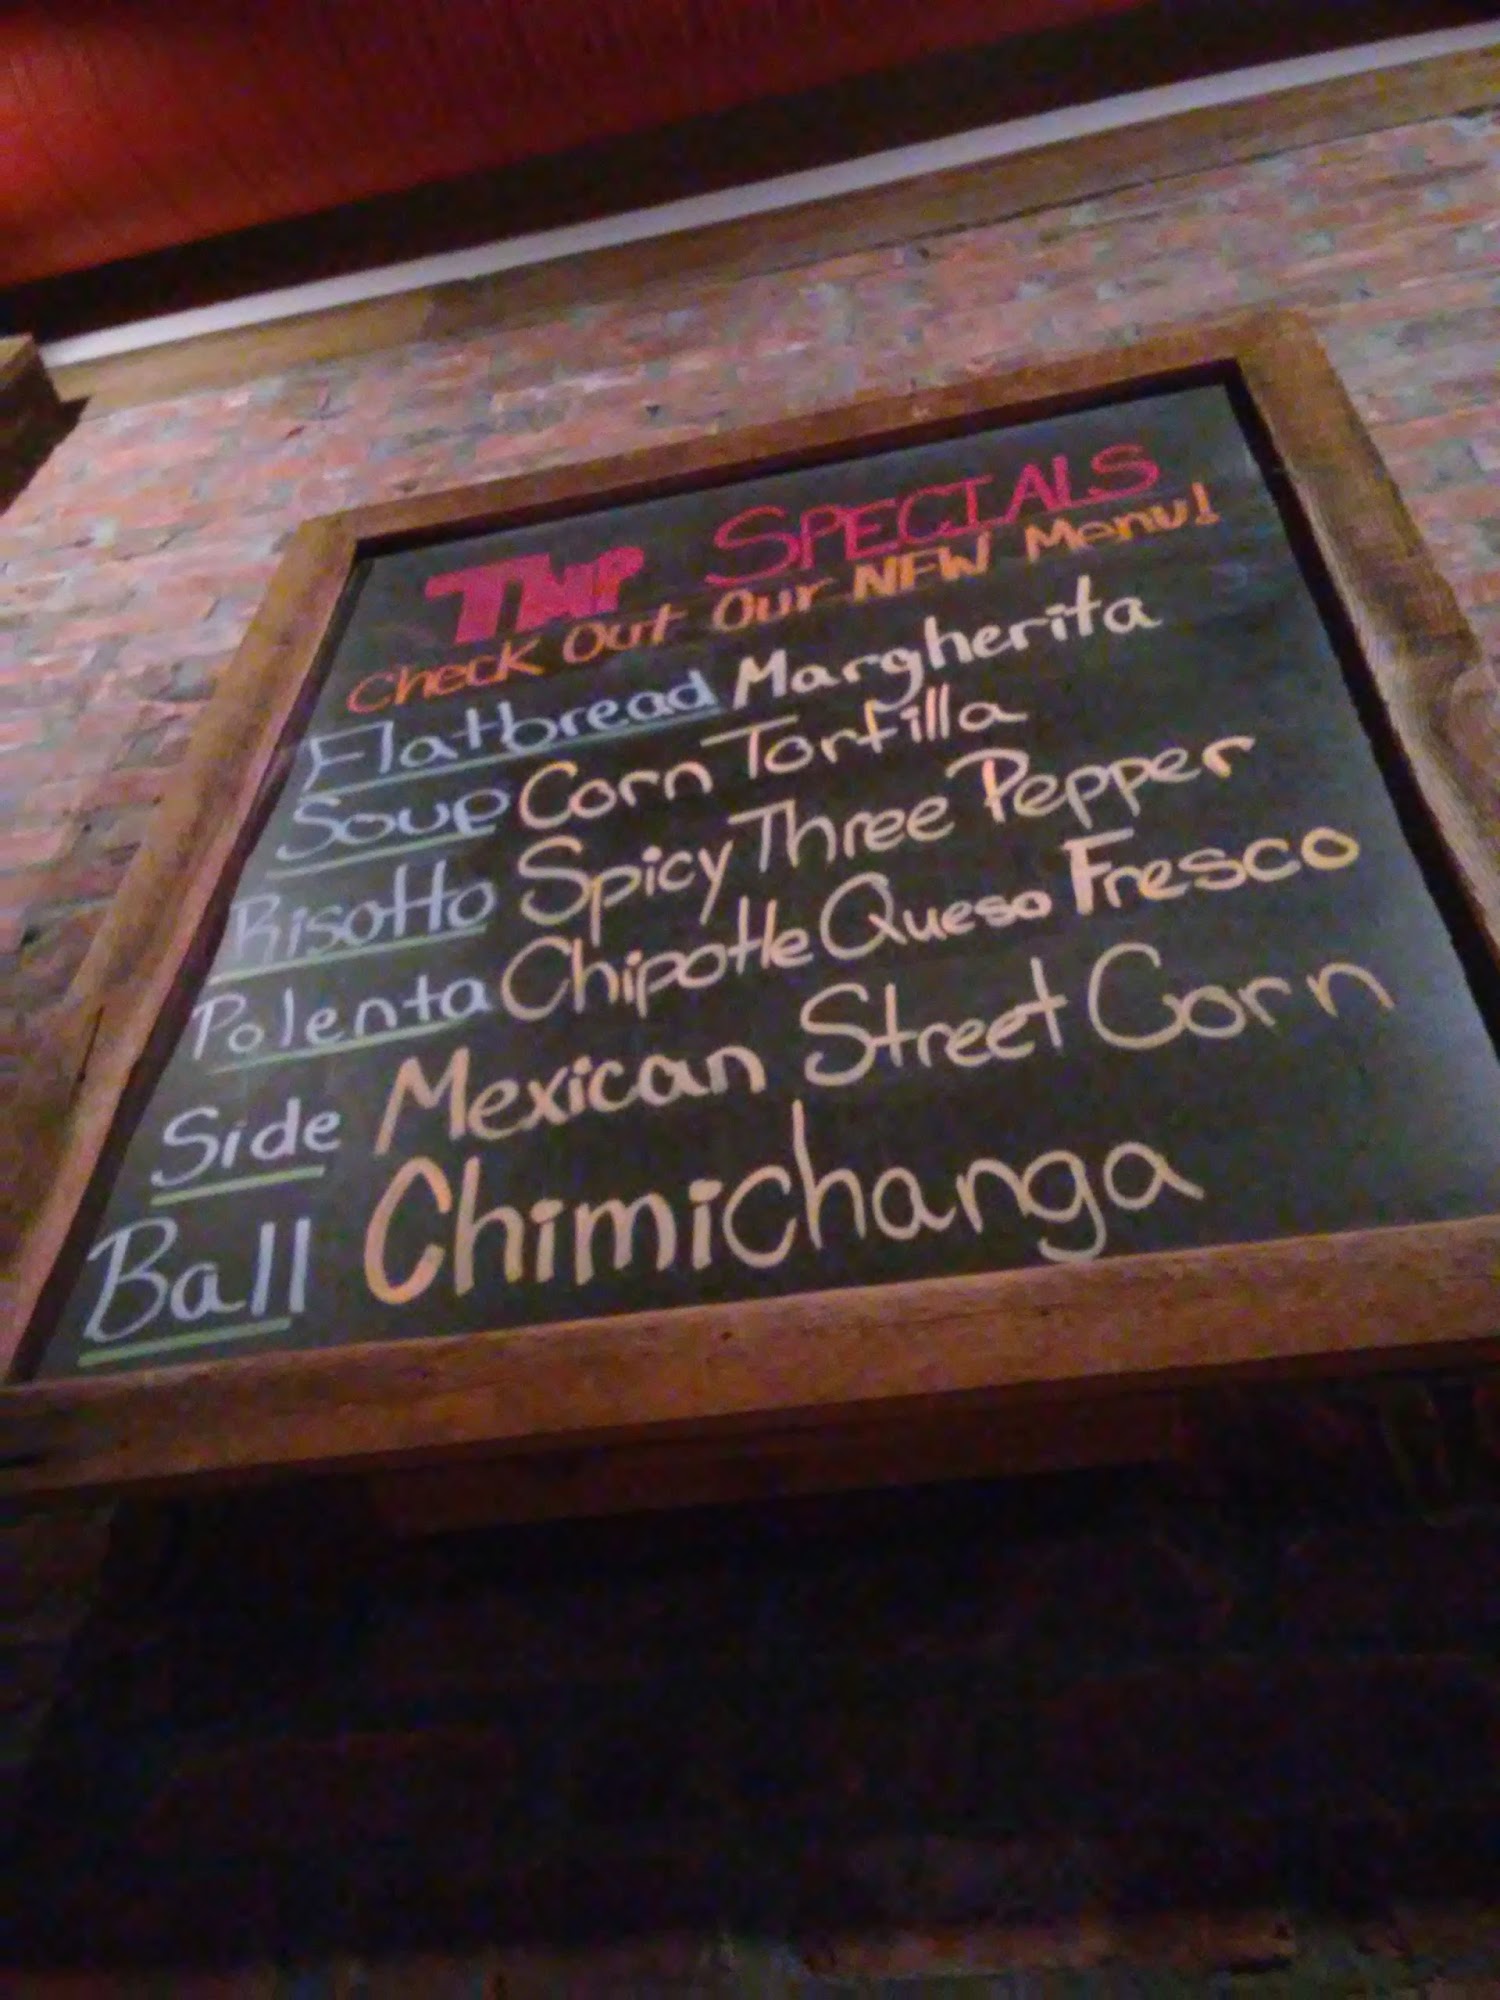 TNP SPECIALS
Check Out Our NEW Menu!
Flatbread Margherita
Soup Corn Tortilla
Risotto Spicy Three Pepper
Polenta Chipotle Queso Fresco
Side Mexican Street Corn
Ball Chimichanga